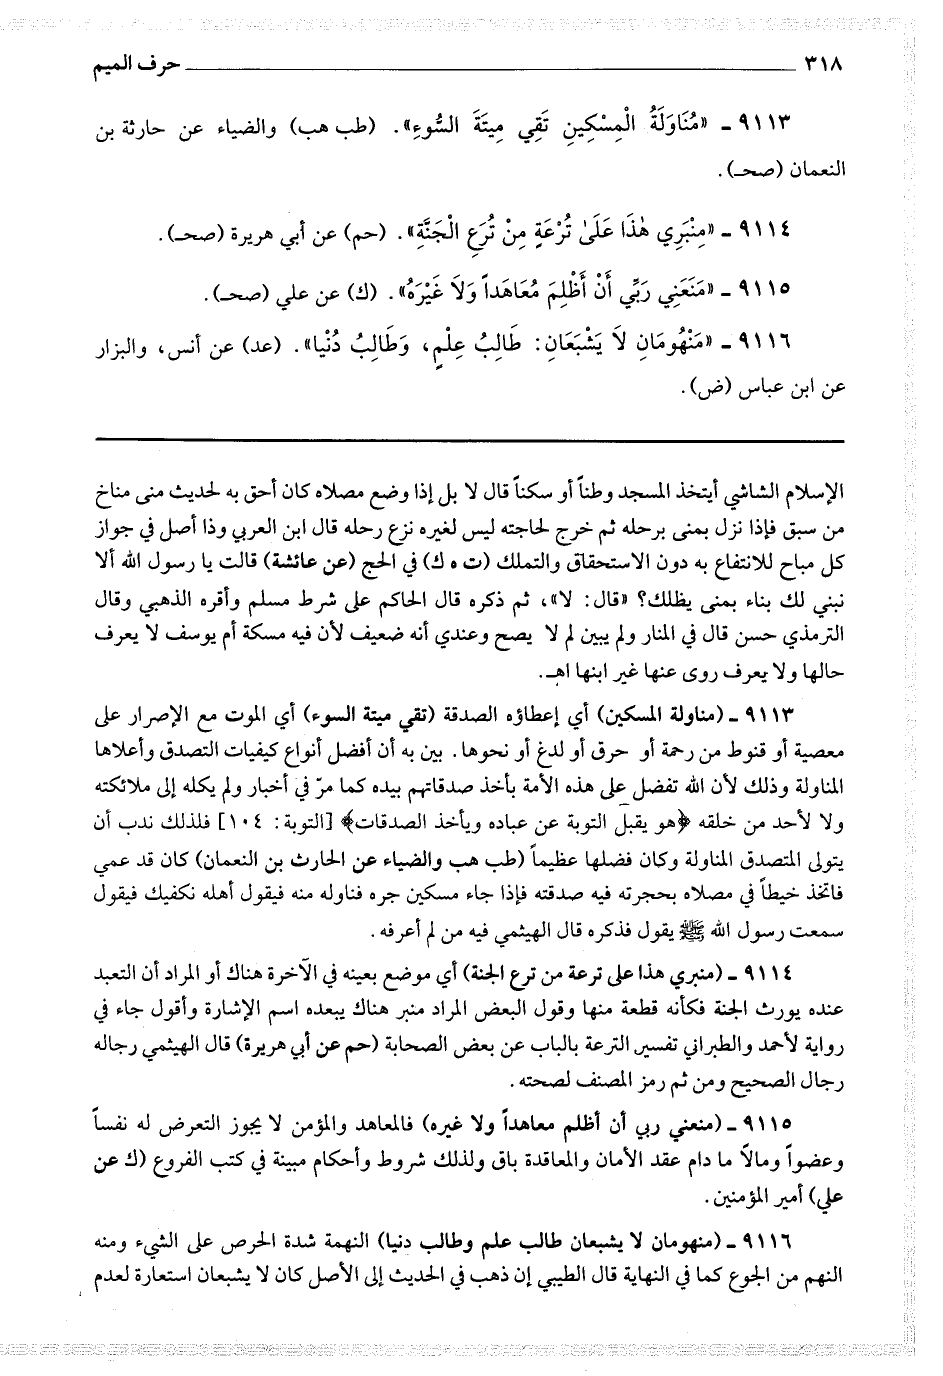 ٣١٨ ــــــ حرف الميم
٩١١٣ ـ «مُنَاوَلَةُ الْمِسْكِينِ تَقِي مِيتَةَ السُّوءِ». (طب هب) والضياء عن حارثة بن
النعمان (صحـ).
٩١١٤ ـ «مِنْبَرِي هٰذَا عَلَىٰ تُرْعَةٍ مِنْ تُرَعِ الْجَنَّةِ». (حم) عن أبي هريرة (صحـ).
٩١١٥ ـ «مَنَعَنِي رَبِّي أَنْ أَظْلِمَ مُعَاهَداً وَلَا غَيْرَهُ». (ك) عن علي (صحـ).
٩١١٦ ـ «مَنْهُومَانِ لاَ يَشْبَعَانِ: طَالِبُ عِلْمٍ، وَطَالِبُ دُنْيا». (عد) عن أنس، والبزار
عن ابن عباس (ض).
الإسلام الشاشي أيتخذ المسجد وطناً أو سكناً قال لا بل إذا وضع مصلاه كان أحق به لحديث منى مناخ
من سبق فإذا نزل بمنى برحله ثم خرج لحاجته ليس لغيره نزع رحله قال ابن العربي وذا أصل في جواز
كل مباح للانتفاع به دون الاستحقاق والتملك (ت ه ك) في الحج (عن عائشة) قالت يا رسول الله ألا
نبني لك بناء بمنى يظلك؟ «قال: لا»، ثم ذكره قال الحاكم على شرط مسلم وأقره الذهبي وقال
الترمذي حسن قال في المنار ولم يبين لم لا يصح وعندي أنه ضعيف لأن فيه مسكة أم يوسف لا يعرف
حالها ولا يعرف روى عنها غير ابنها اهـ.
٩١١٣ ـ (مناولة المسكين) أي إعطاؤه الصدقة (تقي ميتة السوء) أي الموت مع الإصرار على
معصية أو قنوط من رحمة أو حرق أو لدغ أو نحوها. بين به أن أفضل أنواع كيفيات التصدق وأعلاها
المناولة وذلك لأن الله تفضل على هذه الأمة بأخذ صدقاتهم بيده كما مرّ في أخبار ولم يكله إلى ملائكته
ولا لأحد من خلقه ﴿هو يقبل التوبة عن عباده ويأخذ الصدقات﴾ [التوبة: ١٠٤] فلذلك ندب أن
يتولى المتصدق المناولة وكان فضلها عظيماً (طب هب والضياء عن الحارث بن النعمان) كان قد عمي
فاتخذ خيطاً في مصلاه بحجرته فيه صدقته فإذا جاء مسكين جره فناوله منه فيقول أهله نكفيك فيقول
سمعت رسول الله ﷺ يقول فذكره قال الهيثمي فيه من لم أعرفه.
٩١١٤ ـ (منبري هذا على ترعة من ترع الجنة) أي موضع بعينه في الآخرة هناك أو المراد أن التعبد
عنده يورث الجنة فكأنه قطعة منها وقول البعض المراد منبر هناك يبعده اسم الإشارة وأقول جاء في
رواية لأحمد والطبراني تفسير الترعة بالباب عن بعض الصحابة (حم عن أبي هريرة) قال الهيثمي رجاله
رجال الصحيح ومن ثم رمز المصنف لصحته.
٩١١٥ ـ (منعني ربي أن أظلم معاهداً ولا غيره) فالمعاهد والمؤمن لا يجوز التعرض له نفساً
وعضواً ومالاً ما دام عقد الأمان والمعاقدة باق ولذلك شروط وأحكام مبينة في كتب الفروع (ك عن
علي) أمير المؤمنين.
٩١١٦ ـ (منهومان لا يشبعان طالب علم وطالب دنيا) النهمة شدة الحرص على الشيء ومنه
النهم من الجوع كما في النهاية قال الطيبي إن ذهب في الحديث إلى الأصل كان لا يشبعان استعارة لعدم